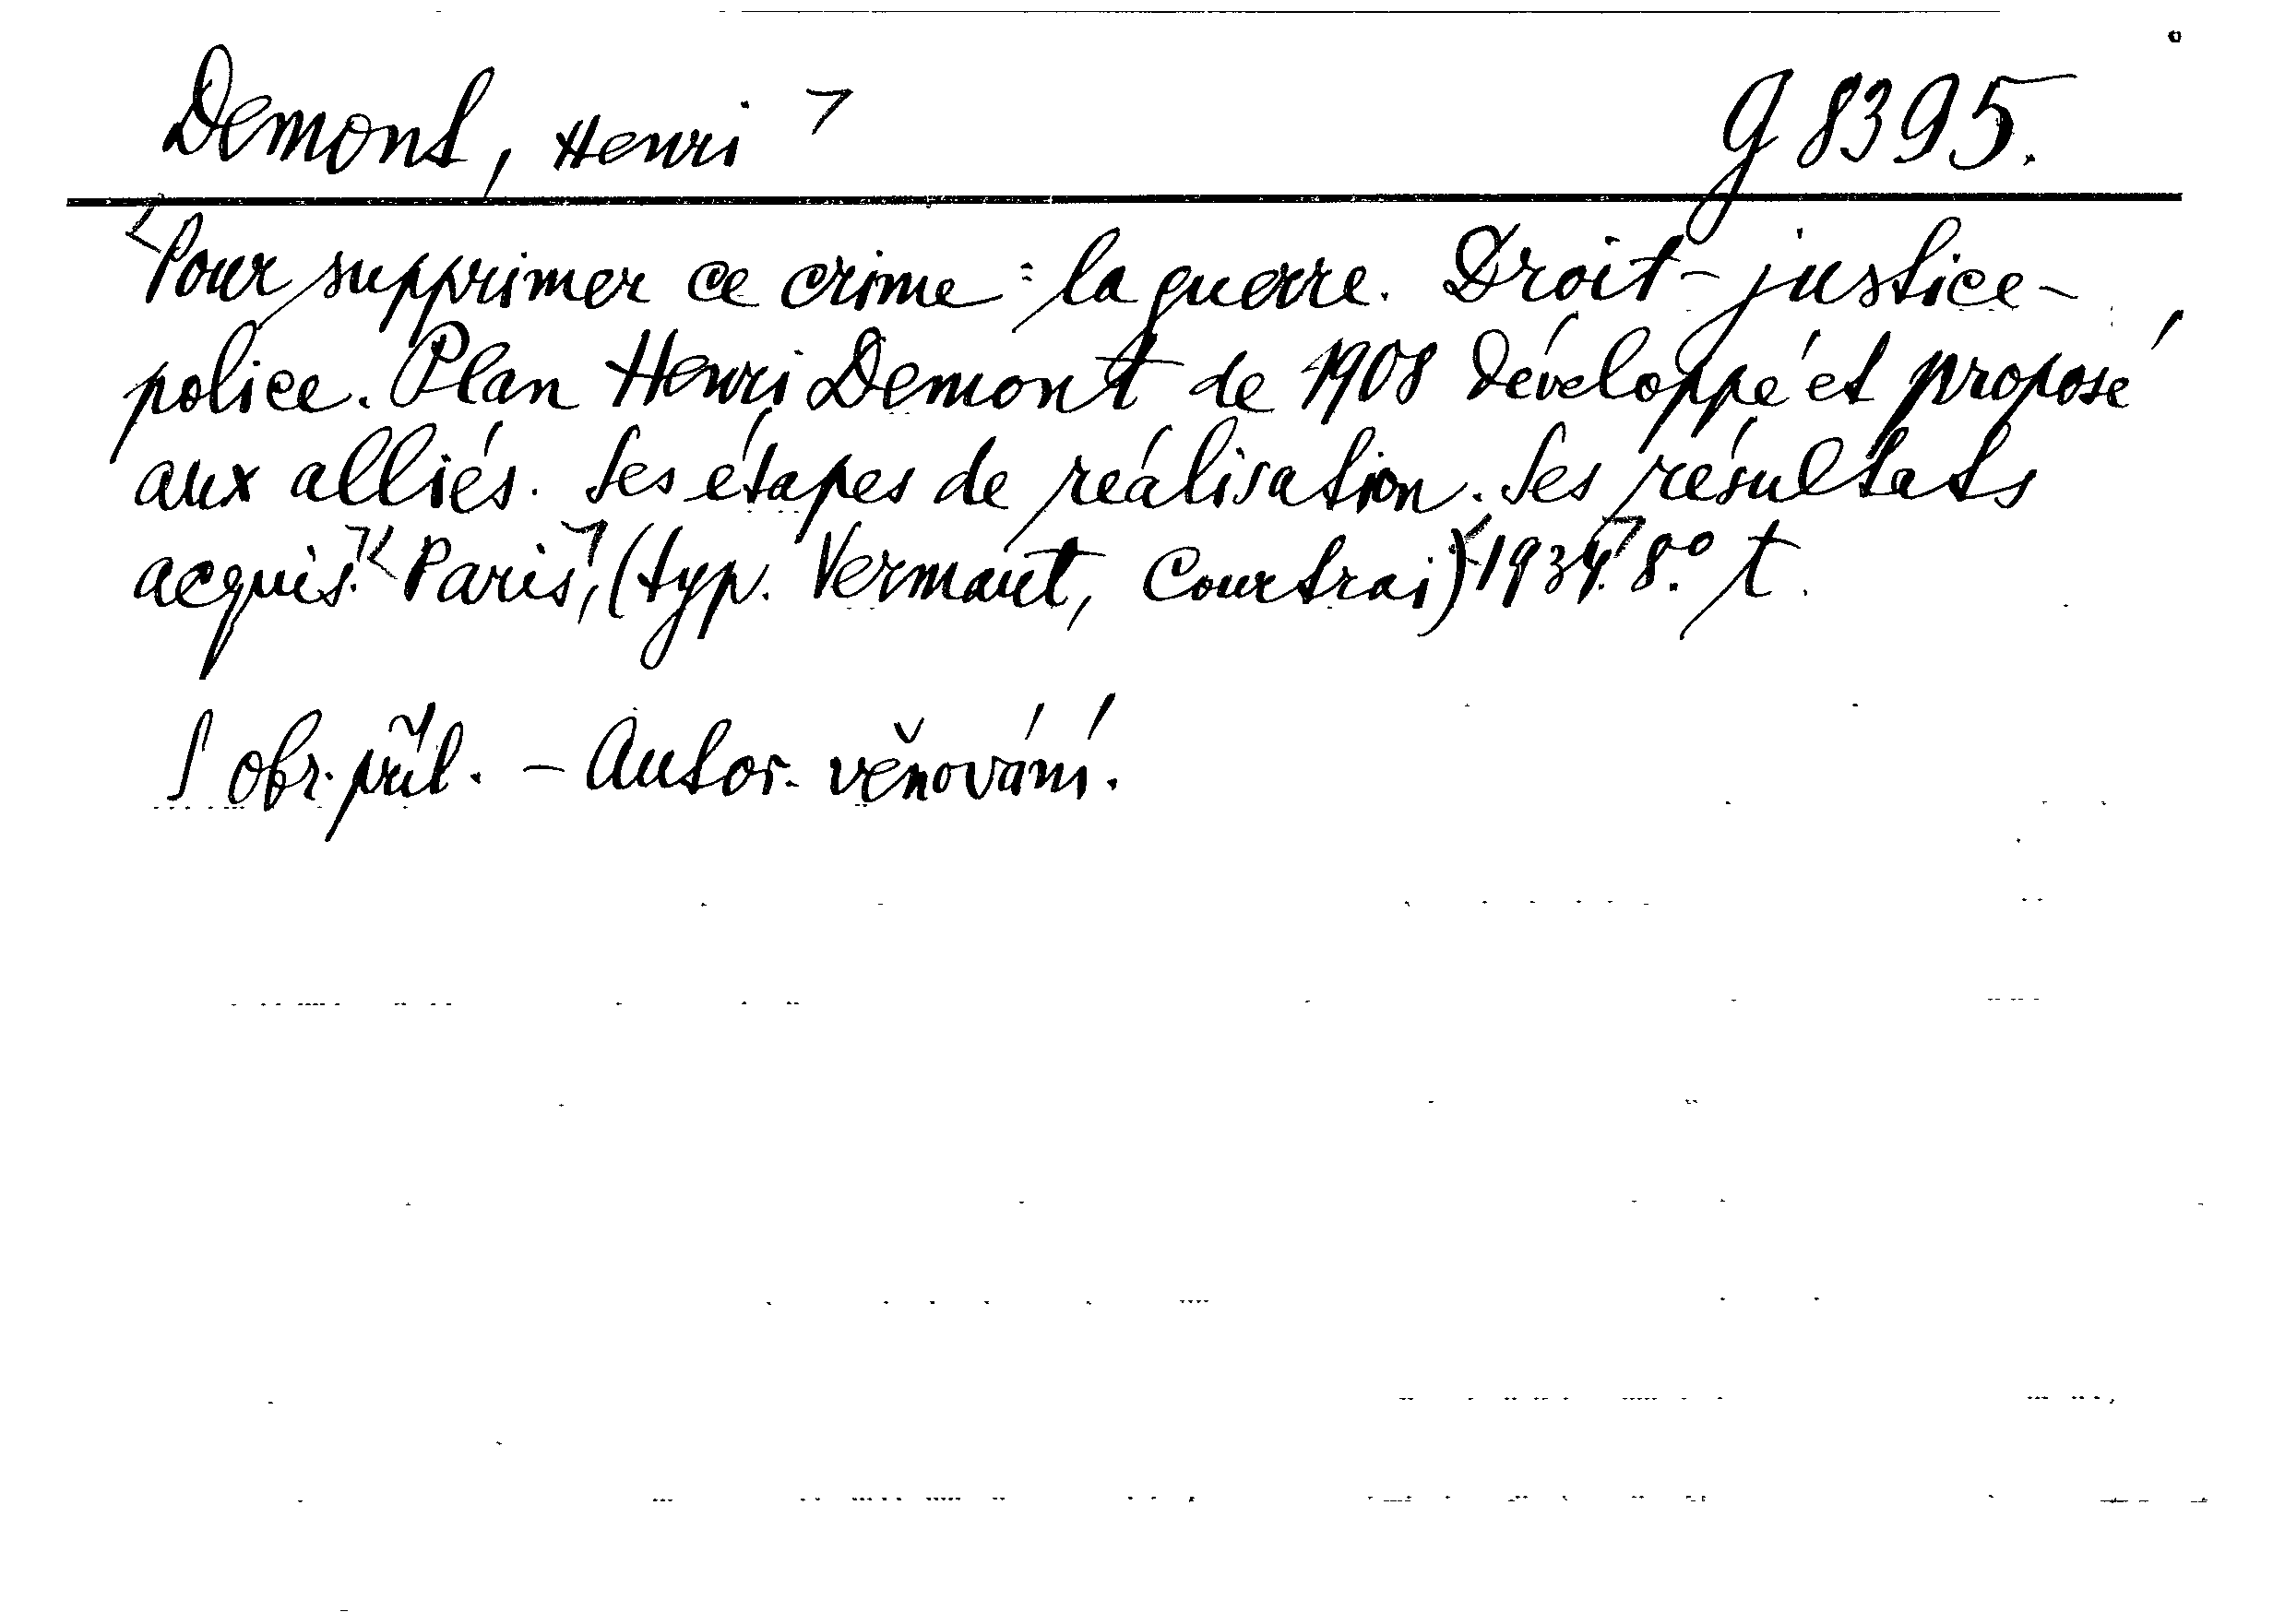 Demont, Henri ⌝ g 8395.
Pour supprimer ce crime: la guerre. Droit - justice -
police. Plan Henri Demont de 1908 développé et proposé
aux alliés. Ses étapes de réalisation. Ses résultats
acquis. Paris, (typ. Vermaut, Courtrai) 1934. 8° t.
S obr. příl. - Autor. věnování.